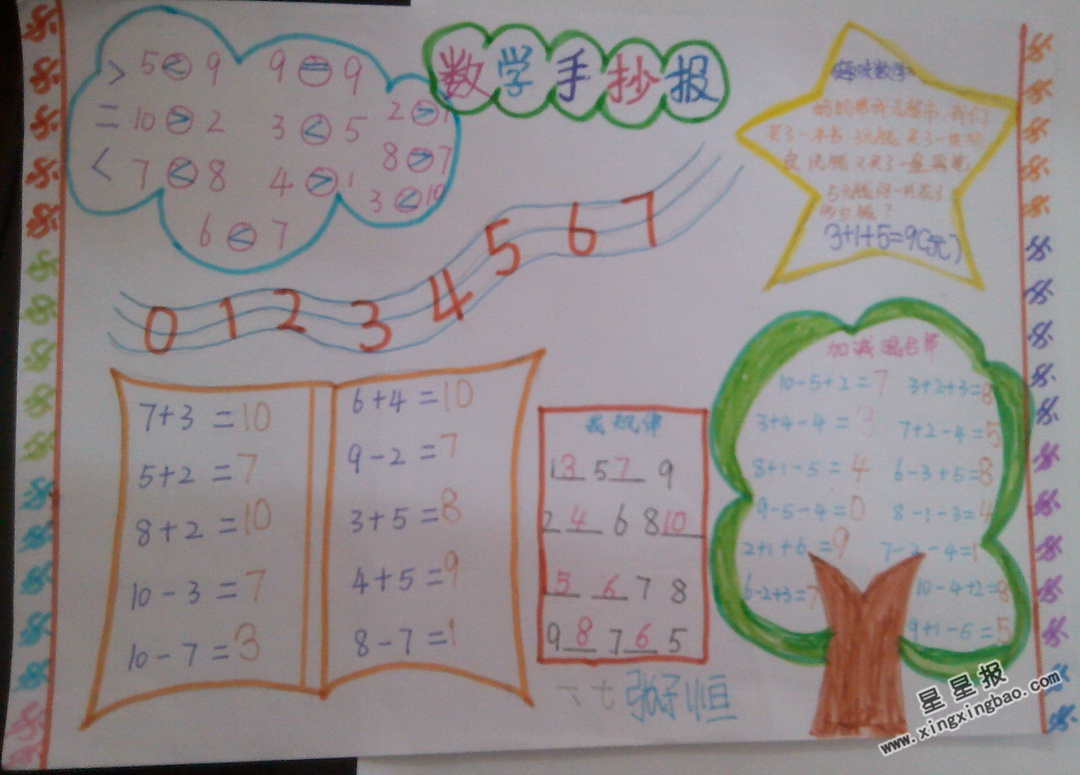 数学手抄报
> 5 < 9 9 = 9
= 10 > 2 3 < 5 2 > 1
< 7 < 8 4 > 1 8 > 7
6 < 7 3 < 10
趣味数学
妈妈带我去超市,我们
买了一本书 3元
买了一
皮 1元 又买了一盒
5元 问一共花了
多少
3+1+5=9(元)
0 1 2 3 4 5 6 7
7+3=10
5+2=7
8+2=10
10-3=7
10-7=3
6+4=10
9-2=7
3+5=8
4+5=9
8-7=1
找规律
1 3 5 7 9
2 4 6 8 10
5 6 7 8
9 8 7 6 5
加减混合算
10-5+2=7 3+2+3=8
3+4-4=3 7+2-4=5
8+1-5=4 6-3+5=8
9-5-4=0 8-1-3=4
2+1+6=9 7-2-4=1
6-2+3=7 10-4+2=8
9+1-5=5
张子恒
星星报
www.xingxingbao.com